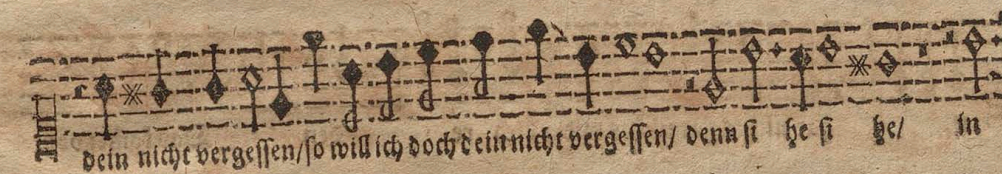 dein nicht vergessen/ so will ich doch dein nicht vergessen/ denn si he si he/ in